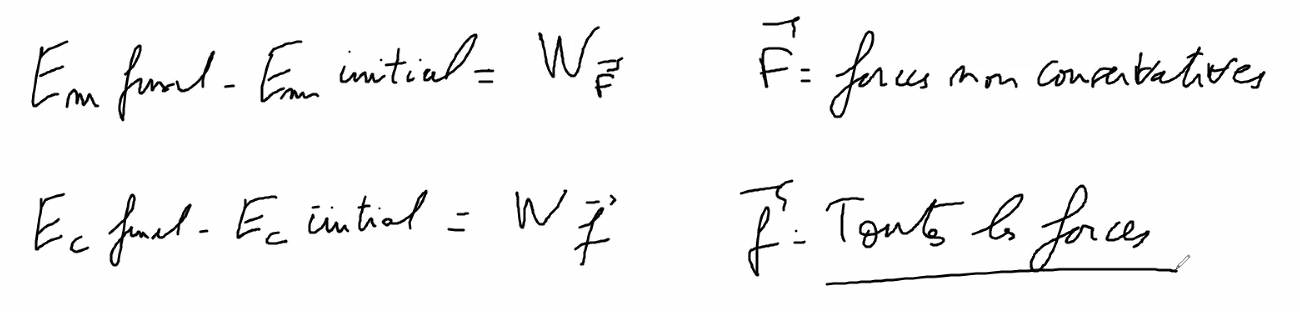 Em final - Em initial = W F⃗ F⃗ = forces non conservatives
Ec final - Ec initial = W f⃗ f⃗ = Toutes les forces